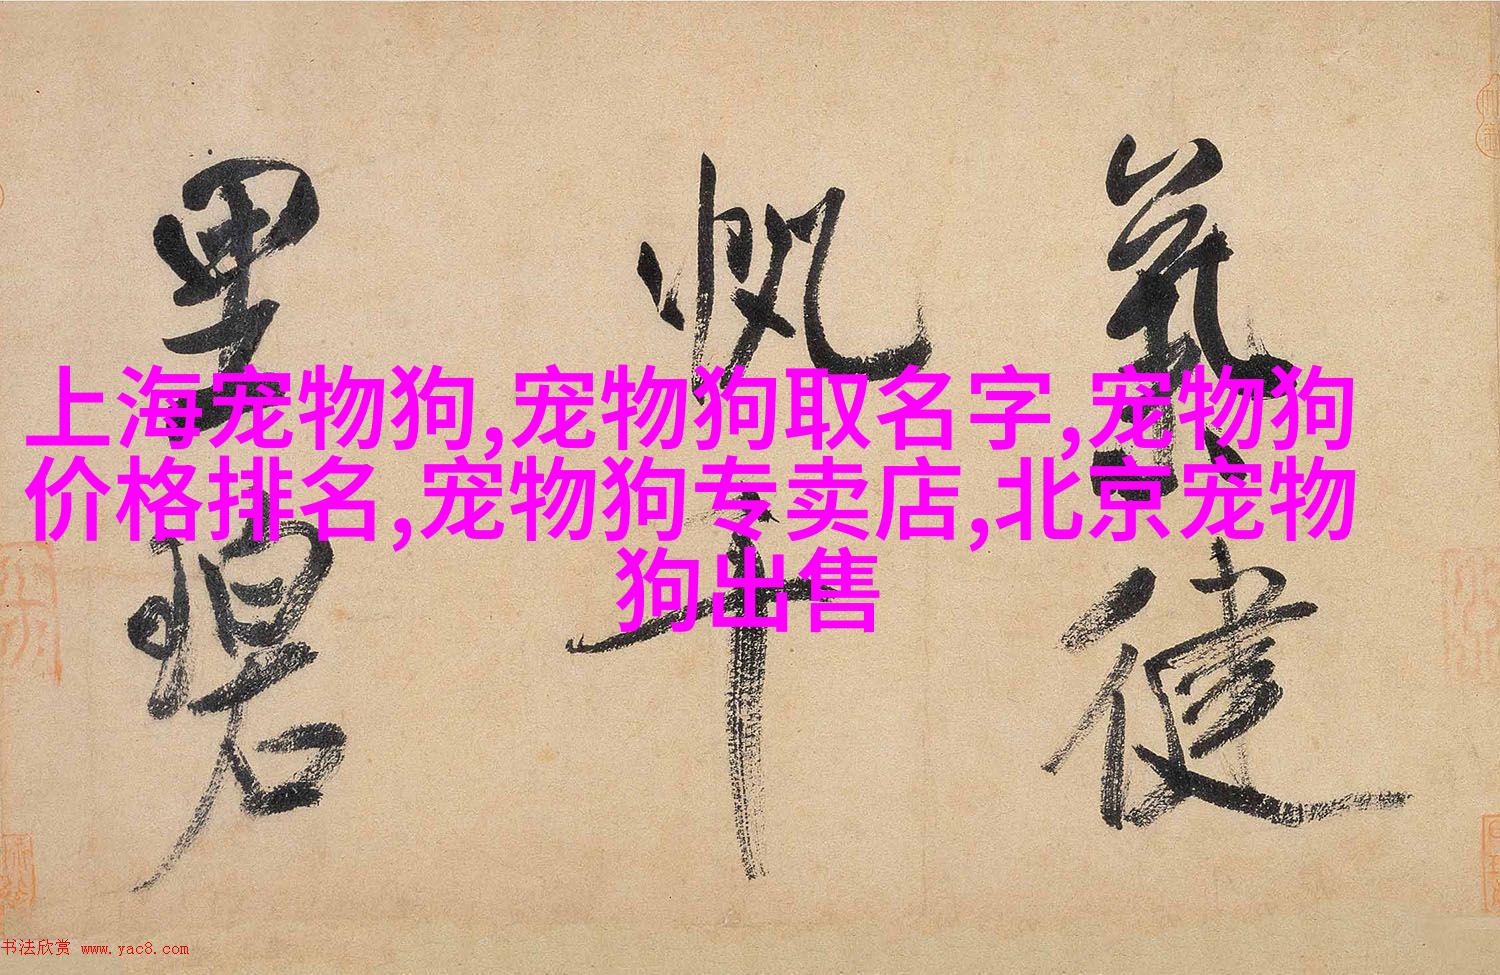 氣健
帆千
里碧
上海宠物狗,宠物狗取名字,宠物狗
价格排名,宠物狗专卖店,北京宠物
狗出售
书法欣赏 www.yac8.com